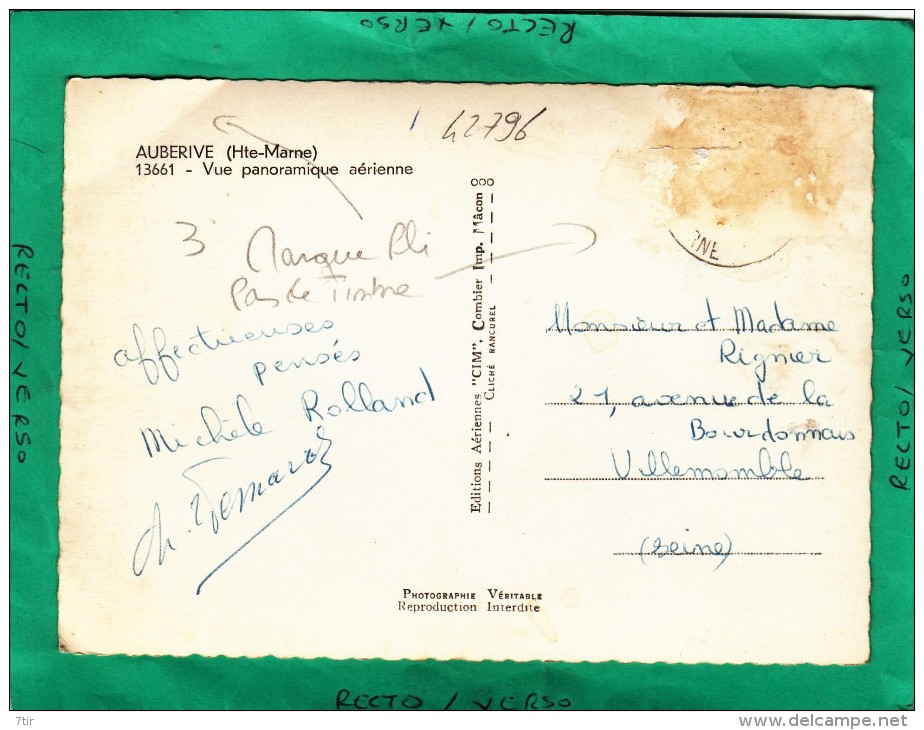 RECTO / VERSO
42796
AUBERIVE (Hte-Marne)
13661 - Vue panoramique aérienne
3
Marque Pli
Pas de Timbre
affectueuses
pensés
Michèle Rolland
Editions Aériennes "CIM", Combier Imp. Mâcon
CLICHÉ RANCUREL
RNE
Monsieur et Madame
Rignier
21, avenue de la
Bourdonnais
Villemomble
(Seine)
PHOTOGRAPHIE VÉRITABLE
Reproduction Interdite
RECTO / VERSO
RECTO / VERSO
RECTO / VERSO
7tir
www.delcampe.net